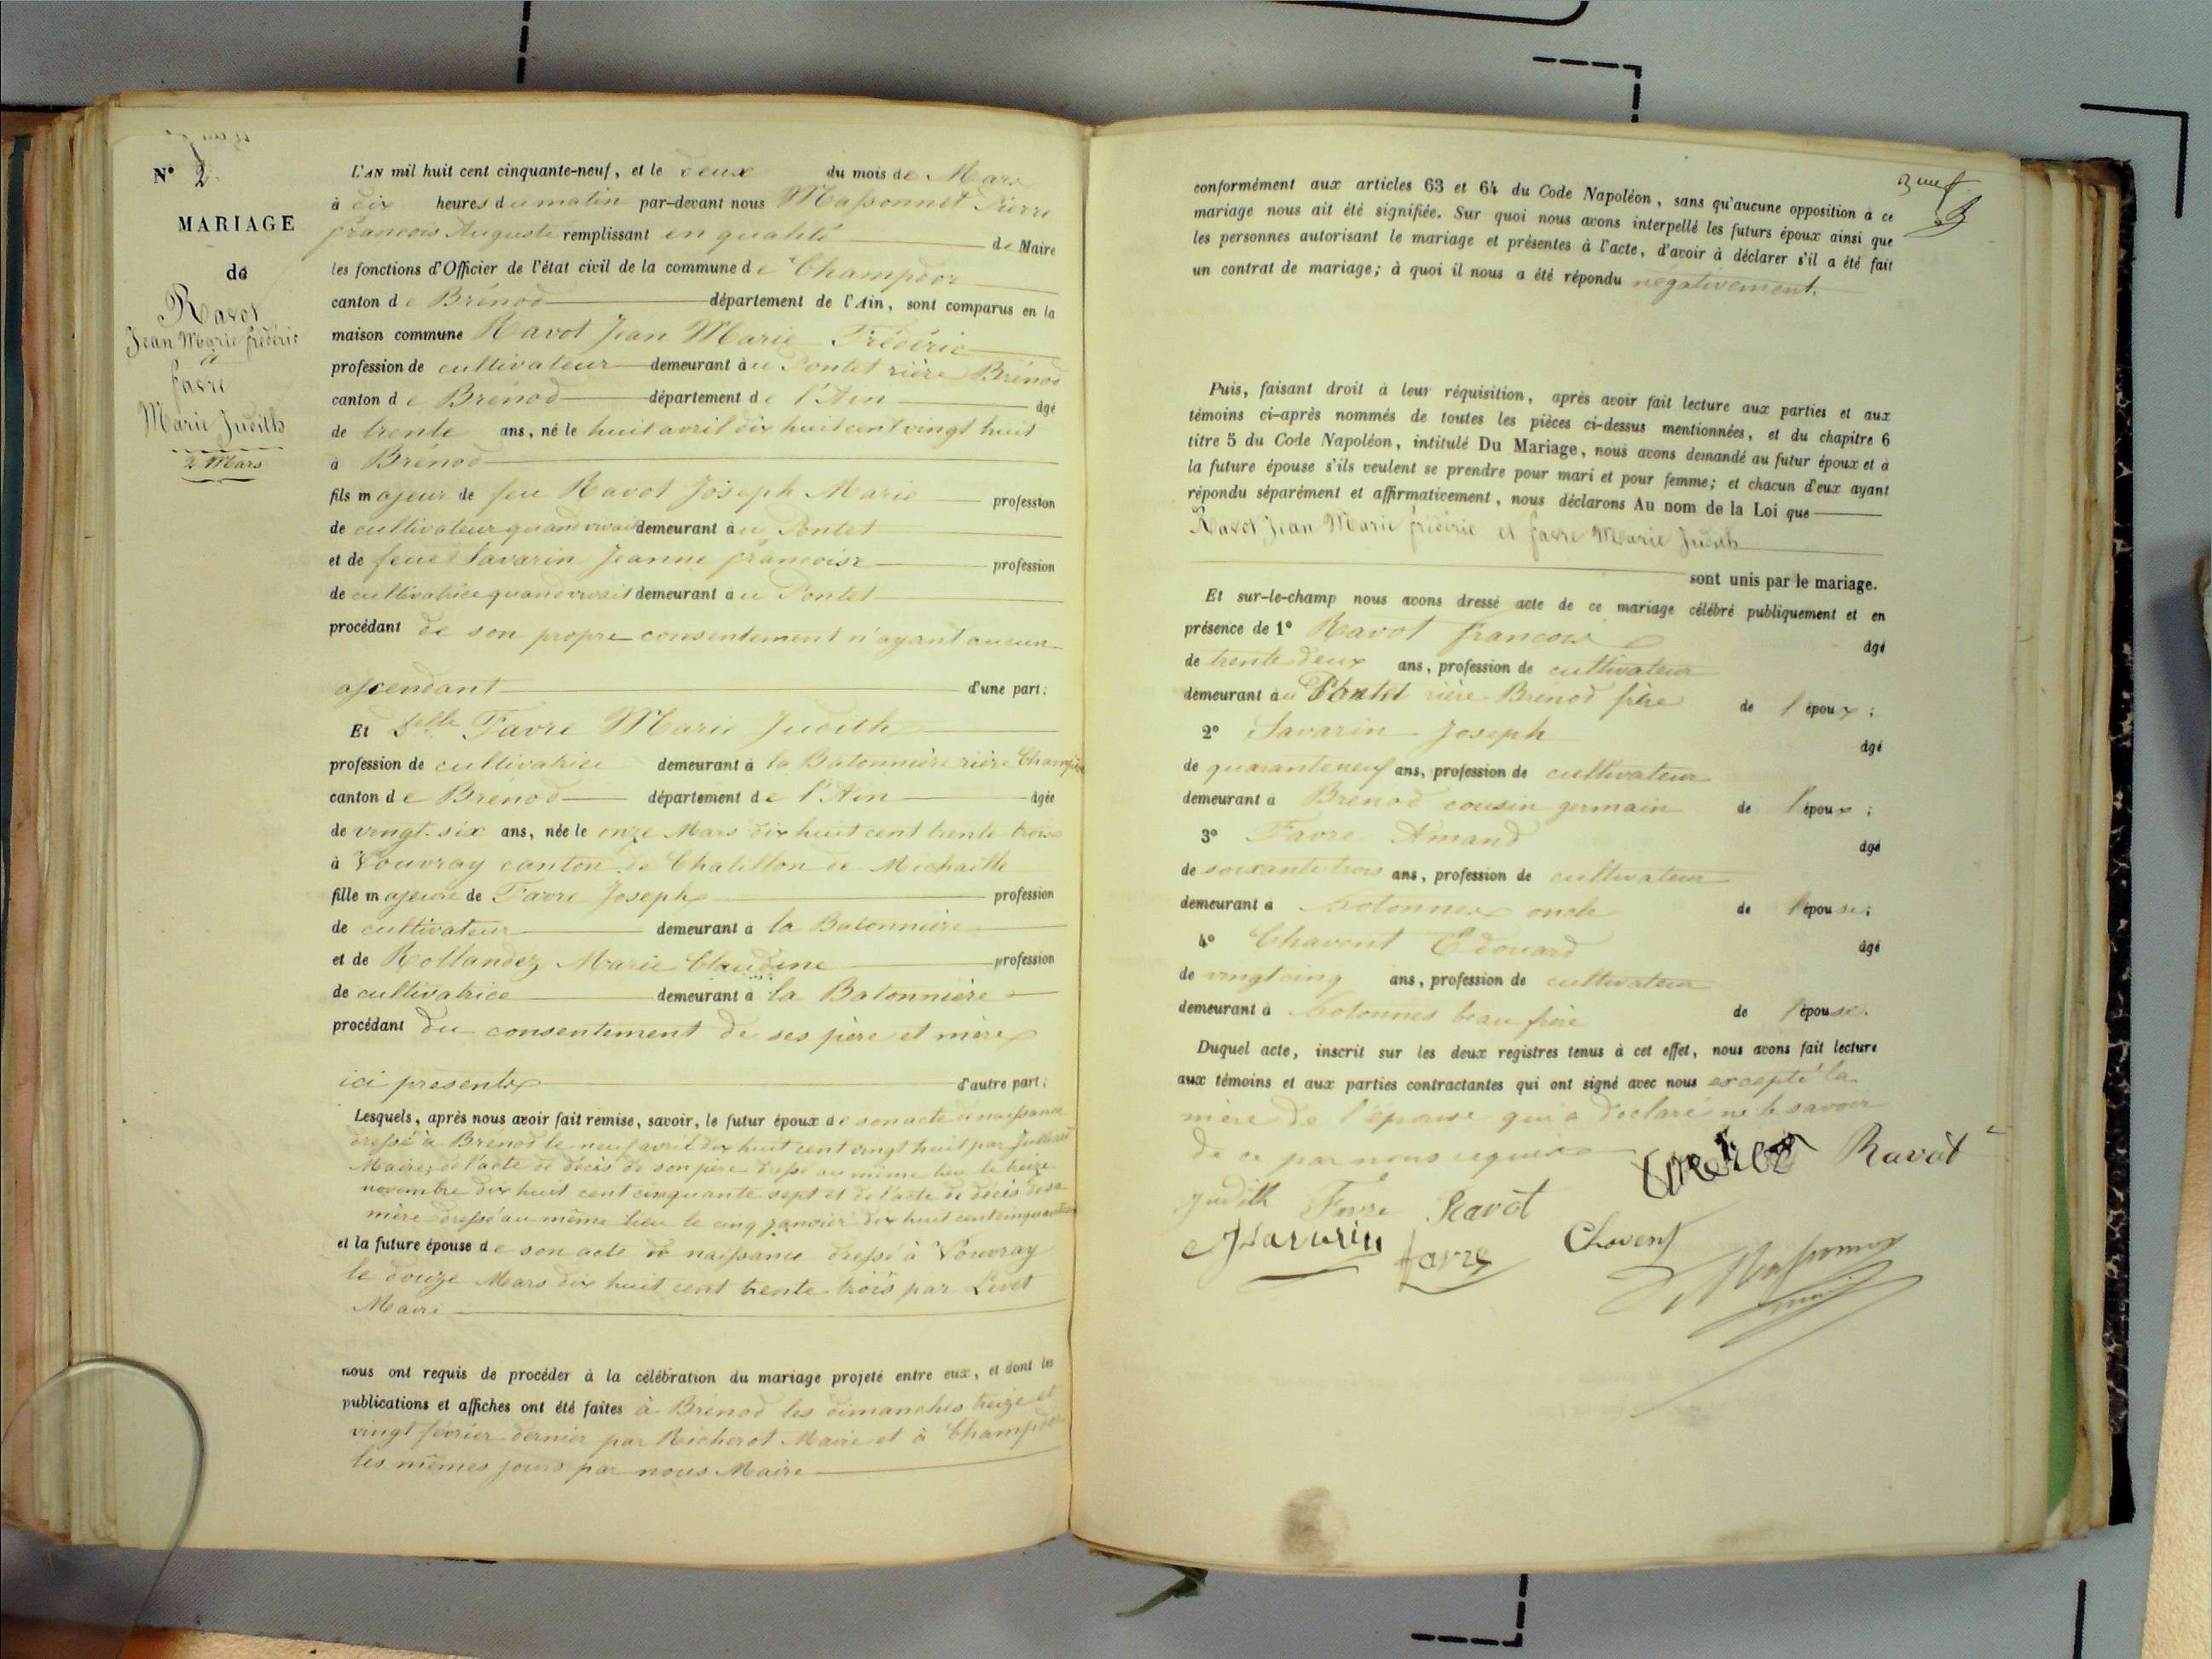 N° 2
MARIAGE
de
Ravot
Jean Marie frédéric
à
favre
Marie Judith
2 Mars
L'AN mil huit cent cinquante-neuf, et le deux du mois de Mars
à dix heures du matin par-devant nous Massonnet Pierre
francois Auguste remplissant en qualité de Maire
les fonctions d'Officier de l'état civil de la commune de Champdor
canton de Brénod département de l'Ain, sont comparus en la
maison commune Ravot Jean Marie Frédéric
profession de cultivateur demeurant au Pontet rière Brénod
canton de Brénod département de l'Ain âgé
de trente ans, né le huit avril dix huit cent vingt huit
à Brénod
fils majeur de feu Ravot Joseph Marie profession
de cultivateur quand vivait demeurant au Pontet
et de feue Savarin Jeanne francoise profession
de cultivatrice quand vivait demeurant au Pontet
procédant de son propre consentement n'ayant aucun
ascendant d'une part;
Et Delle Favre Marie Judith
profession de cultivatrice demeurant à la Batonnière rière Champdor
canton de Brénod département de l'Ain âgée
de vingt-six ans, née le onze Mars dix huit cent trente trois
à Vouvray canton de Chatillon de Michaille
fille majeure de Favre Joseph profession
de cultivateur demeurant à la Batonnière
et de Rollandez Marie Claudine profession
de cultivatrice demeurant à la Batonnière
procédant du consentement de ses père et mère
ici presents d'autre part;
Lesquels, après nous avoir fait remise, savoir, le futur époux de son acte de naissance
dressé à Brénod le neuf avril dix huit cent vingt huit par
Maire, de l'acte de décès de son père dressé au même lieu le treize
novembre dix huit cent cinquante sept et de l'acte de décès de sa
mère dressé au même lieu le cinq janvier dix huit cent
et la future épouse de son acte de naissance dressé à Vouvray
le douze Mars dix huit cent trente trois par Livet
Maire
nous ont requis de procéder à la célébration du mariage projeté entre eux, et dont les
publications et affiches ont été faites à Brénod les dimanches treize et
vingt février dernier par Richerot Maire et à Champdor
les mêmes jours par nous Maire
neuf
conformément aux articles 63 et 64 du Code Napoléon, sans qu'aucune opposition à ce
mariage nous ait été signifiée. Sur quoi nous avons interpellé les futurs époux ainsi que
les personnes autorisant le mariage et présentes à l'acte, d'avoir à déclarer s'il a été fait
un contrat de mariage; à quoi il nous a été répondu négativement.
Puis, faisant droit à leur réquisition, après avoir fait lecture aux parties et aux
témoins ci-après nommés de toutes les pièces ci-dessus mentionnées, et du chapitre 6
titre 5 du Code Napoléon, intitulé Du Mariage, nous avons demandé au futur époux et à
la future épouse s'ils veulent se prendre pour mari et pour femme; et chacun d'eux ayant
répondu séparément et affirmativement, nous déclarons Au nom de la Loi que
Ravot Jean Marie frédéric et favre Marie Judith
sont unis par le mariage.
Et sur-le-champ nous avons dressé acte de ce mariage célébré publiquement et en
présence de 1° Ravot francois âgé
de trente deux ans, profession de cultivateur
demeurant au Pontet rière Brénod frère de l'époux;
2° Savarin Joseph âgé
de quaranteneuf ans, profession de cultivateur
demeurant à Brénod cousin germain de l'époux;
3° Favre Amand âgé
de soixante trois ans, profession de cultivateur
demeurant à oncle de l'épouse;
4° Chavent Edouard âgé
de vingtcinq ans, profession de cultivateur
demeurant à beau frère de l'épouse.
Duquel acte, inscrit sur les deux registres tenus à cet effet, nous avons fait lecture
aux témoins et aux parties contractantes qui ont signé avec nous excepté la
mère de l'épouse qui a declaré ne le savoir
de ce par nous requise
Ravot
Judith Favre Ravot
JSavarin favre Chavent
Massonnet